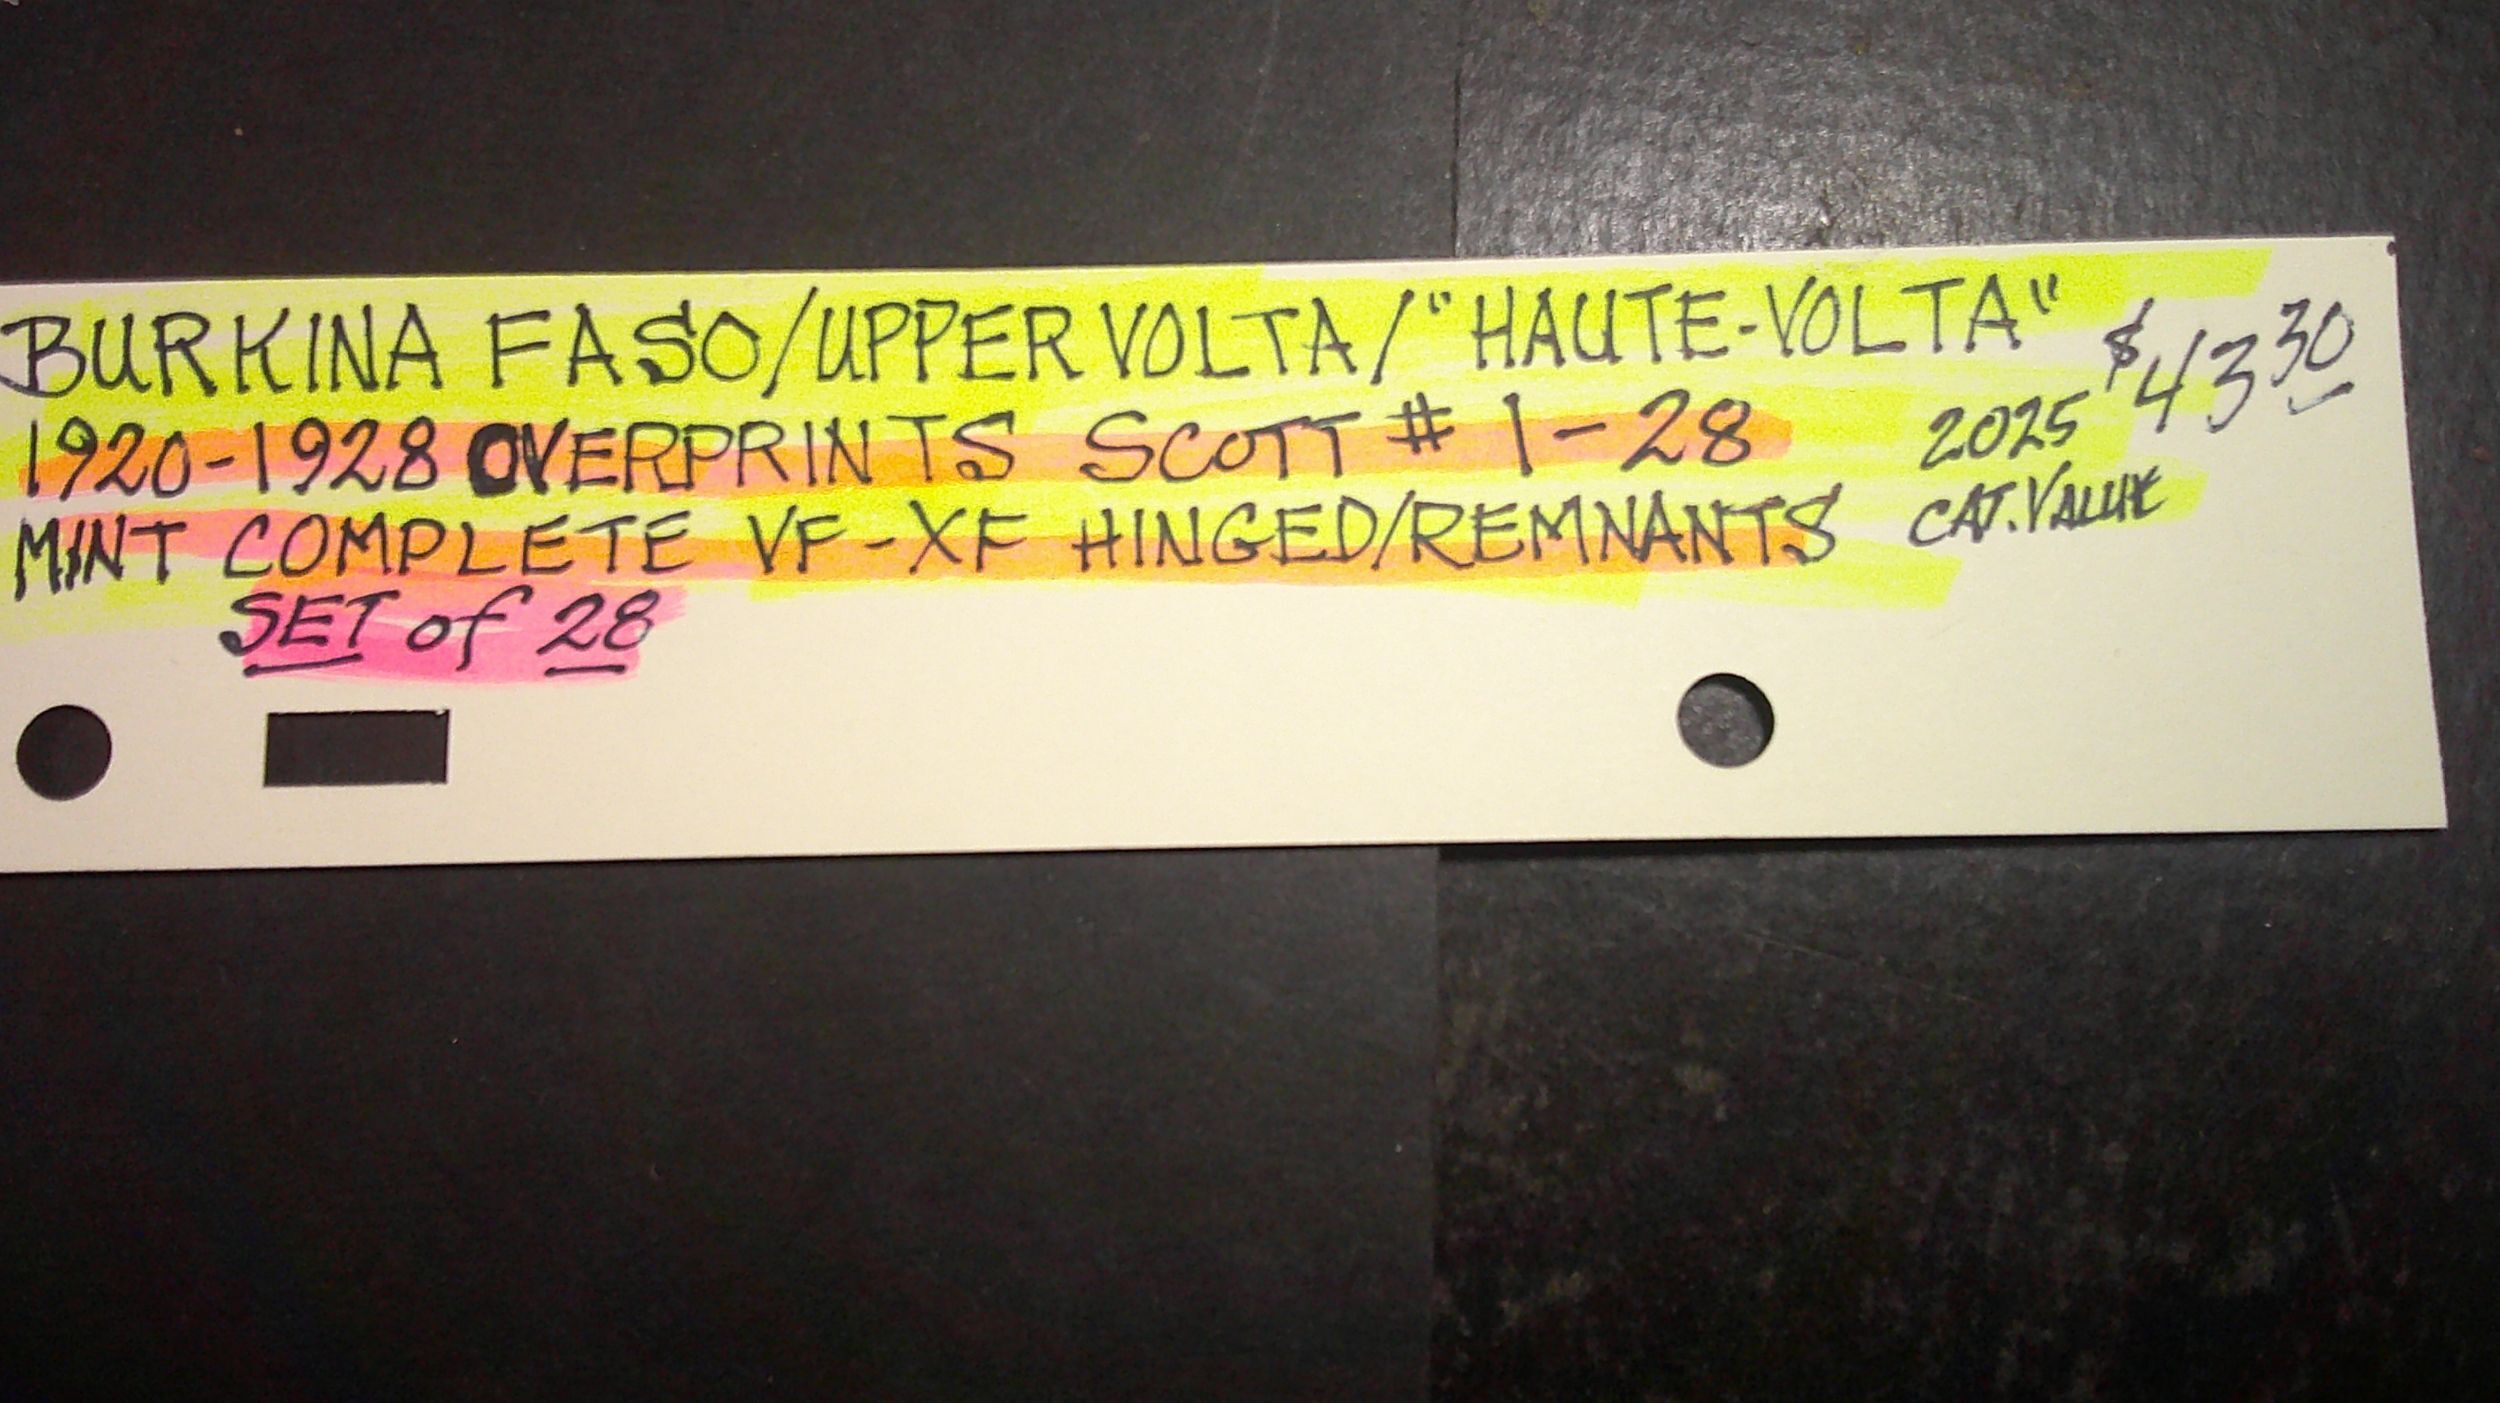 BURKINA FASO/UPPER VOLTA/"HAUTE-VOLTA"
1920-1928 OVERPRINTS SCOTT # 1-28
MINT COMPLETE VF-XF HINGED/REMNANTS
SET of 28
$43.30
2025
CAT. VALUE